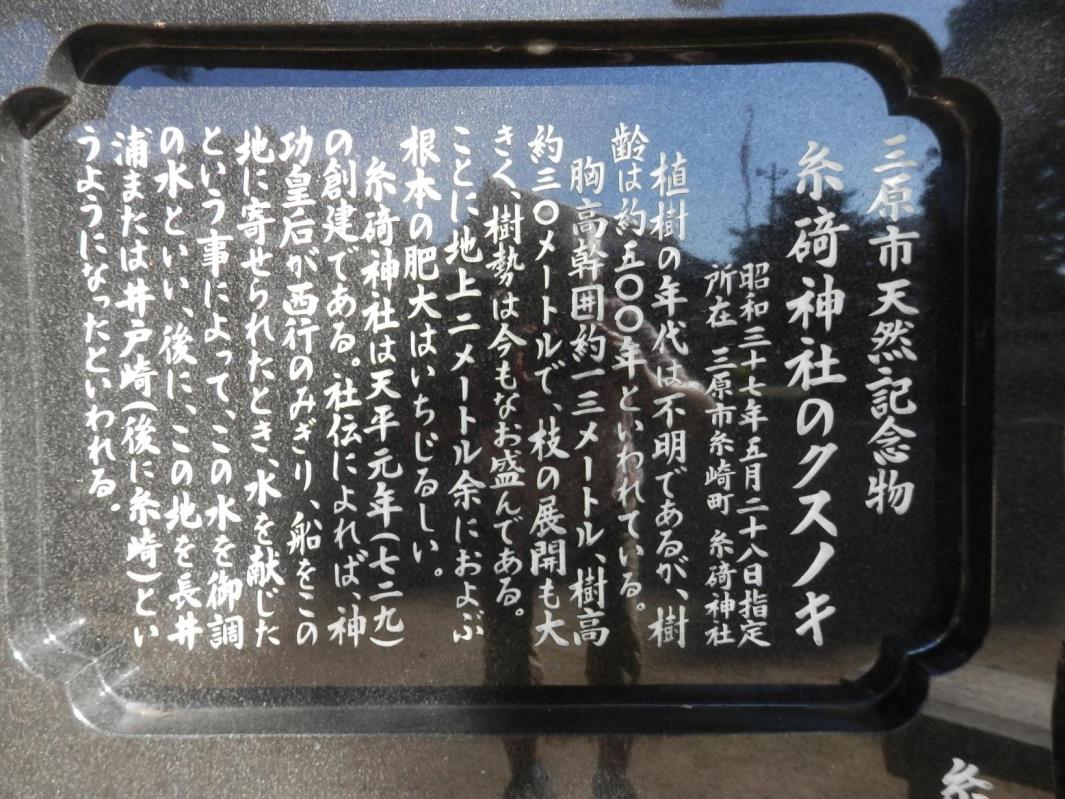 三原市天然記念物
糸碕神社のクスノキ
昭和三十七年五月二十八日指定
所在 三原市糸崎町 糸碕神社
植樹の年代は不明であるが、樹
齢は約五〇〇年といわれている。
胸高幹囲約一三メートル、樹高
約三〇メートルで、枝の展開も大
きく、樹勢は今もなお盛んである。
ことに地上二メートル余におよぶ
根本の肥大はいちじるしい。
糸碕神社は天平元年(七二九)
の創建である。社伝によれば、神
功皇后が西行のみぎり、船をこの
地に寄せられたとき、水を献じた
という事によって、この水を御調
の水といい、後に、この地を長井
浦または井戸崎(後に糸崎)とい
うようになったといわれる。
糸